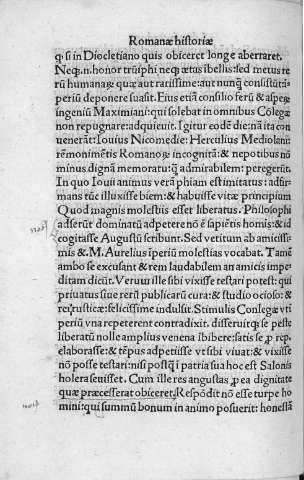 Romanæ historiæ
ꝙ si in Diocletiano quis obiiceret longe aberraret.
Neqꝫ.n. honor triũphi neqꝫ ætas ibellis: sed metus re
rũ humanaꝝ quæ aut rarissime: aut nunq̃ consistũt:
periũ deponere suasit. Eius etiã consilio ferũ & aspeꝝ
ingeniũ Maximiani: qui solebat in omnibus Collegæ
non repugnare: adquieuit. Igitur eodẽ die: nã ita con
uenerãt: Iouius Nicomedie: Herculius Mediolani:
rẽ nominẽtis Romanoꝝ incognitã: & nepotibus nõ
minus dignã memoratu: q̃ admirabilem: peregerũt.
In quo Iouii animus verã phiam estimitatus: adfir
mans tũc illuxisse biem: & habuisse vitæ principium
Quod magnis molestiis esset liberatus. Philosophi
adserũt dominatũ adpetere nõ ẽ sapiẽtis homĩs: & id
cogitasse Augustũ scribunt. Sed vetitum ab amicissi
mis & M. Aurelius ĩperiũ molestias vocabat. Tamẽ
ambo se excusant & rem laudabilem an amicis impe
ditam dicũt. Verum ille sibi vixisse testari potest: qui
priuatus siue rerũ publicarũ cura: & studio ocioso: &
rei rusticæ: felicissime indulsit. Stimulis Conlegæ vt ĩ
periũ vna repeterent contradixit. disseruitqꝫ se peste
liberatũ nolle amplius venena ibibere: satis se ꝓ rep.
elaborasse: & tẽpus adpetiisse vt sibi viuat: & vixisse
nõ posse testari: nisi postq̃ ĩ patria sua hoc est Salonis
holera seuisset. Cum ille res angustas ꝓ ea dignitate
quæ præcesserat obiiceret. Respõdit nõ esse turpe ho
mini: qui summũ bonum in animo posuerit: honestã